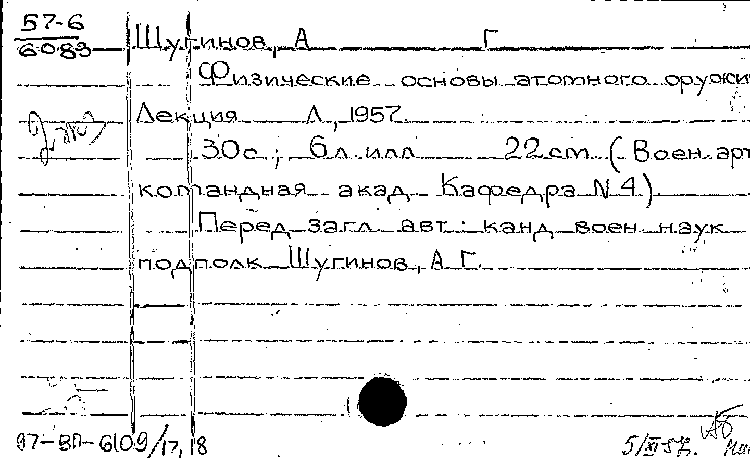 57-6
6083
Шугинов, А Г
Физические основы атомного оружи
Лекция Л, 1957
30с; 6л.илл 22 cm (Воен.арт
командная акад Кафедра N 4)
Перед загл авт: канд воен наук
подполк Шугинов, А Г.
97-ВП-6109/17,18
5/XI 57.